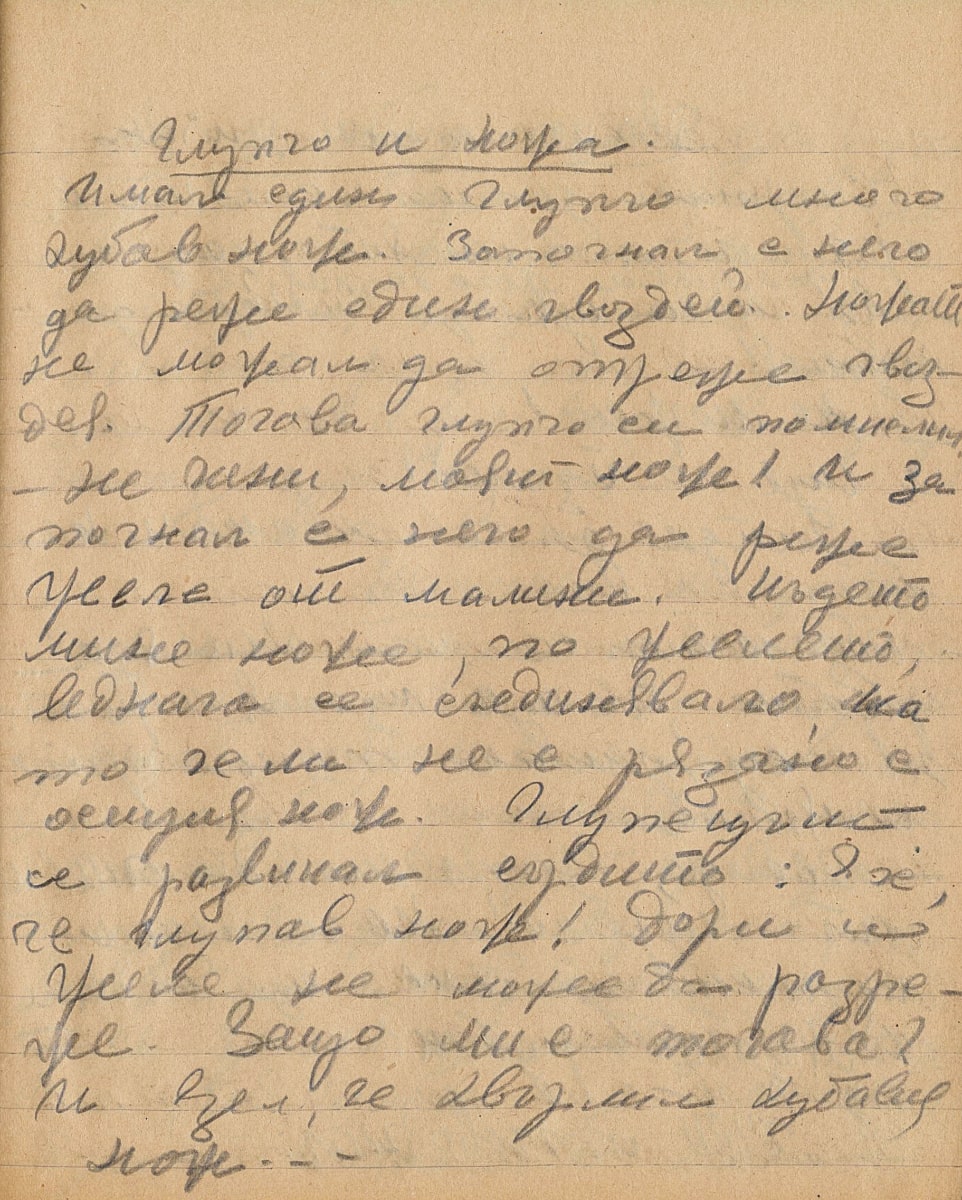 Глупчо и ножа.
Имал един Глупчо много
хубав нож. Започнал с него
да реже един гвоздей. Ножът
не можал да отреже гвоз-
дея. Тогава глупчо си помислил
- не чини, моят нож! И за
почнал с него да реже
желе от малини. Където
мине ноже, по желето,
веднага се съединявало, ка
то че ли не е рязано с
острия нож. Глупецът
се развикал сърдито: Ехе,
че глупав нож! Дори и
желе не може да разре-
же. Защо ми е тогава?
И взел, че хвърлил хубавия
нож - - -